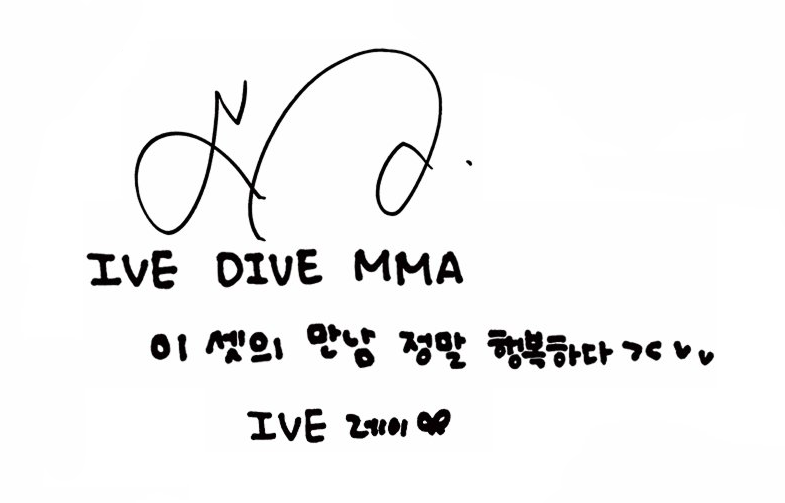 IVE DIVE MMA
이 셋의 만남 정말 행복하다 ><
IVE 레이